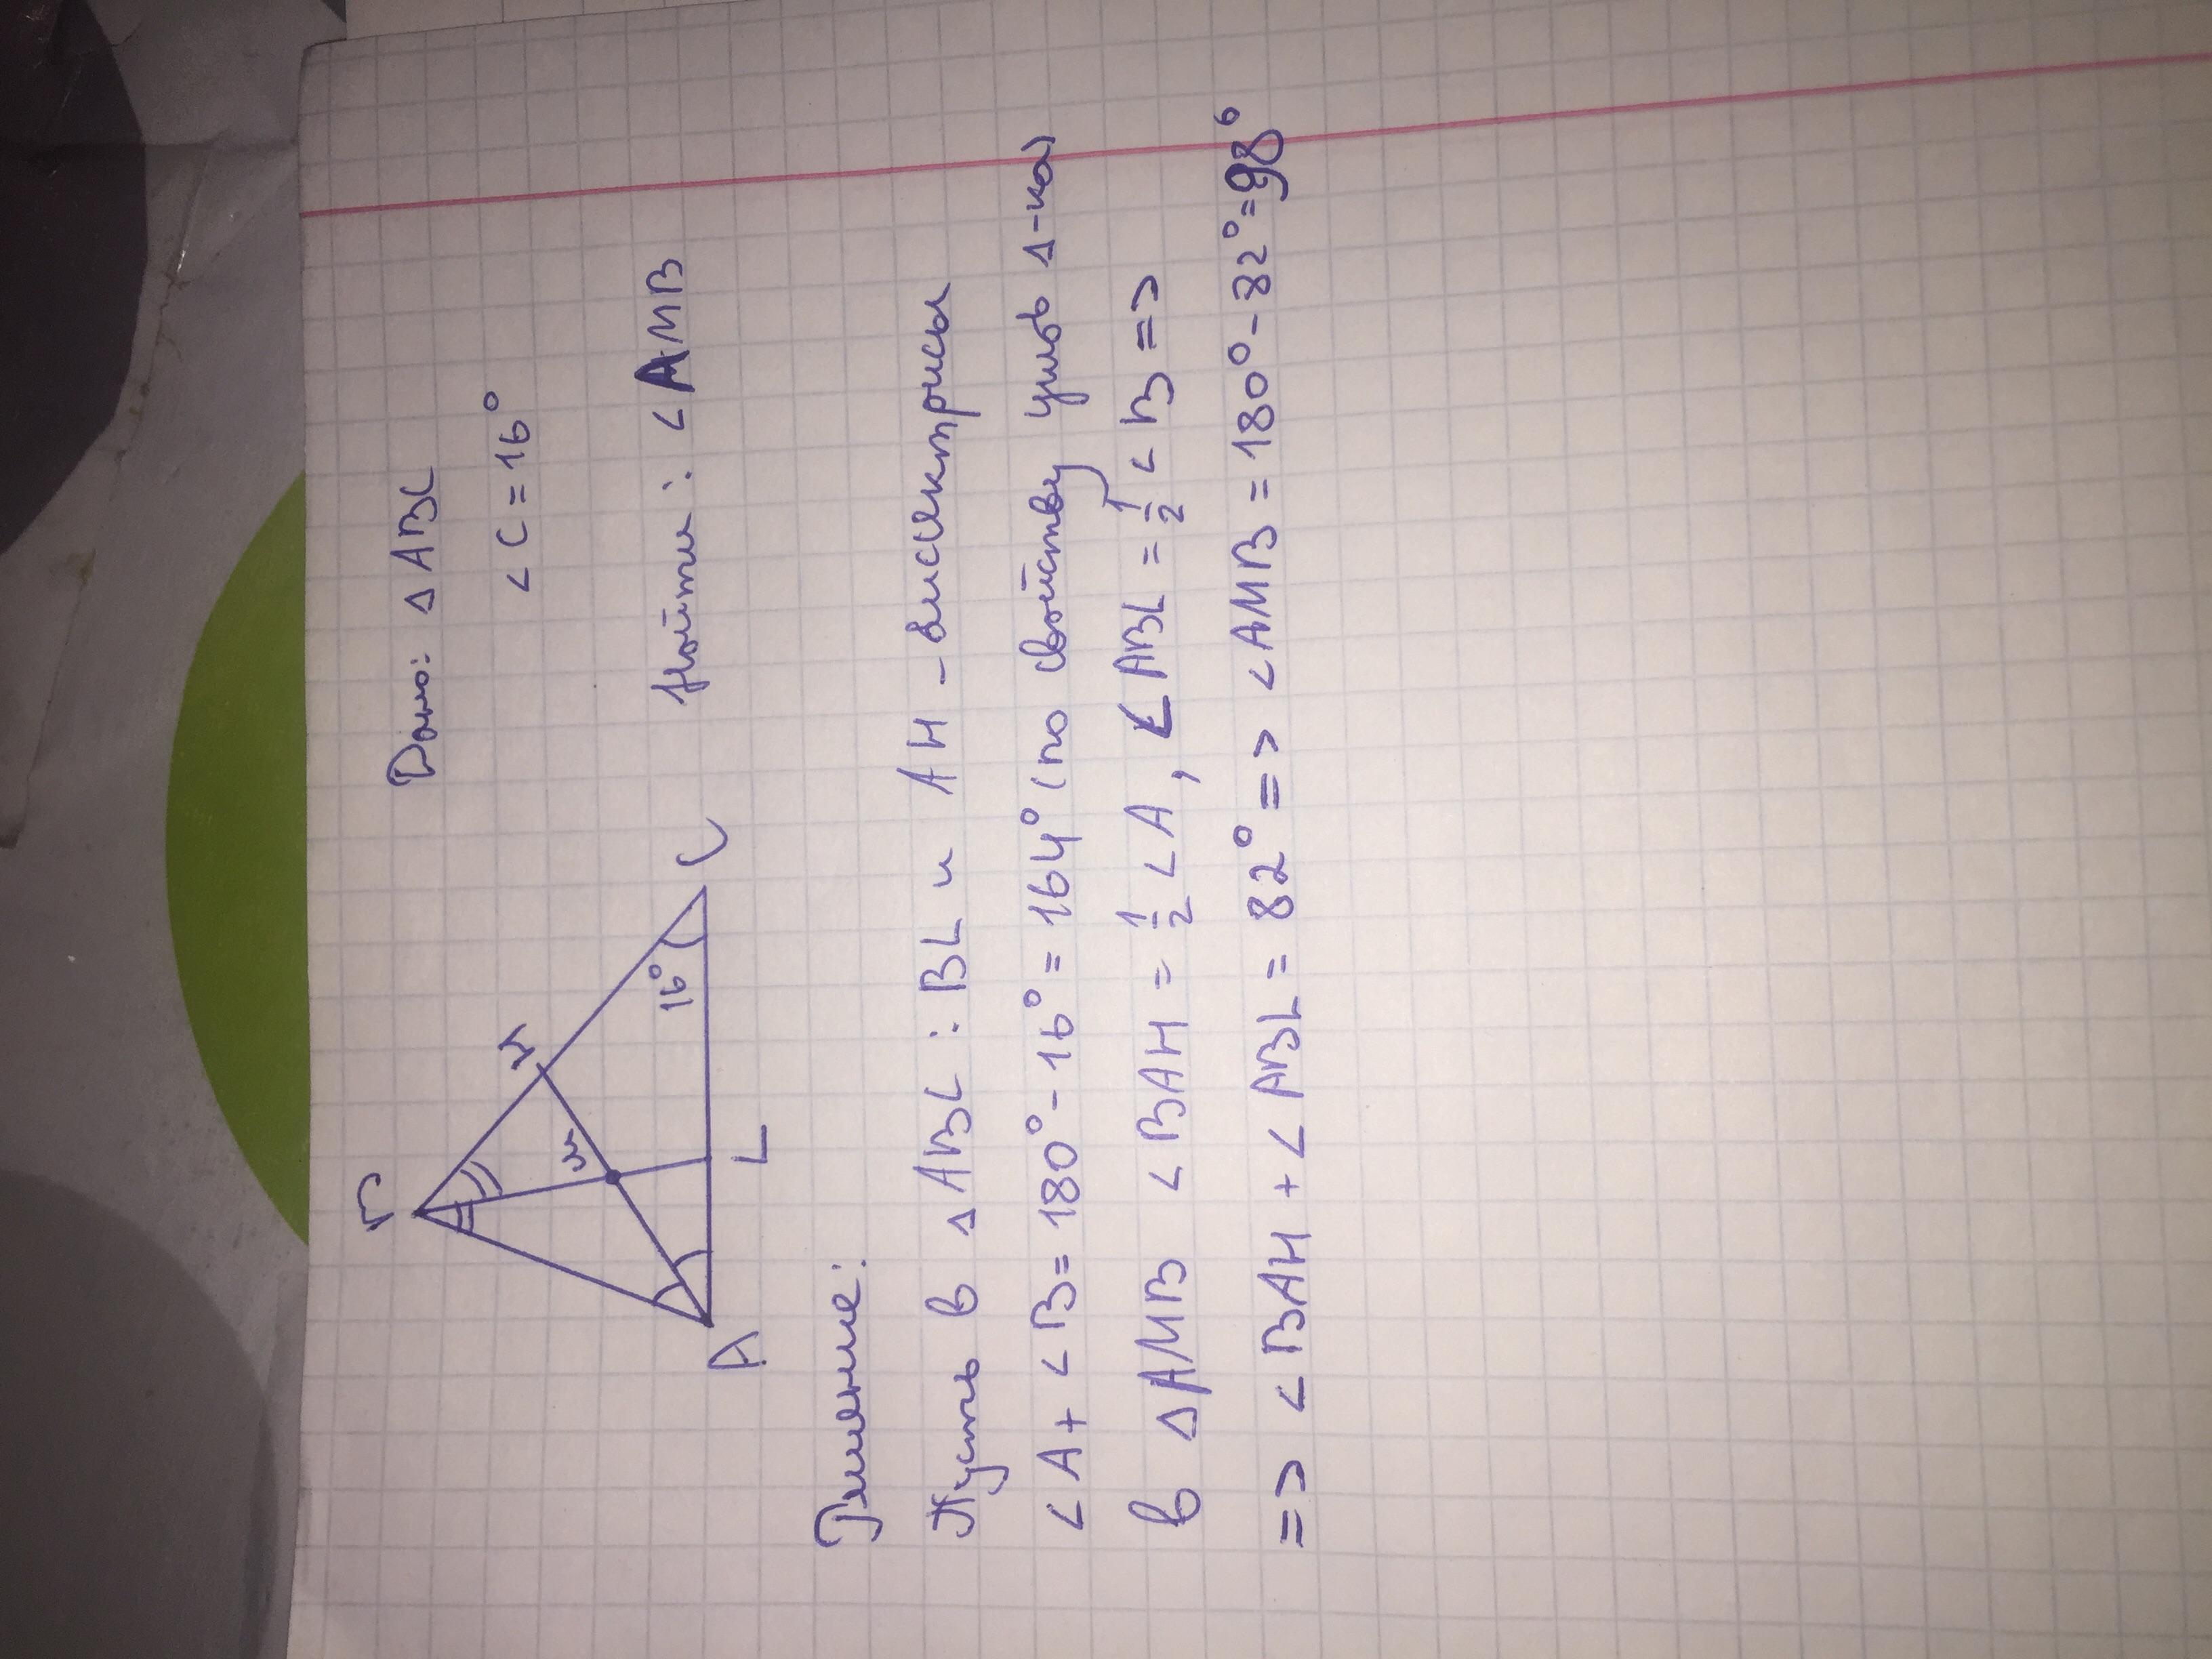 Дано: △ ABC
∠ C = 16°
Найти: ∠ AMB
B
H
M
16°
A
L
C
Решение:
Пусть в △ ABC: BL и AH - биссектрисы
∠A + ∠B = 180° - 16° = 164° (по свойству углов △-ка)
В △AMB ∠BAH = 1/2 ∠A, ∠ABL = 1/2 ∠B =>
=> ∠BAH + ∠ABL = 82° => ∠AMB = 180° - 82° = 98°